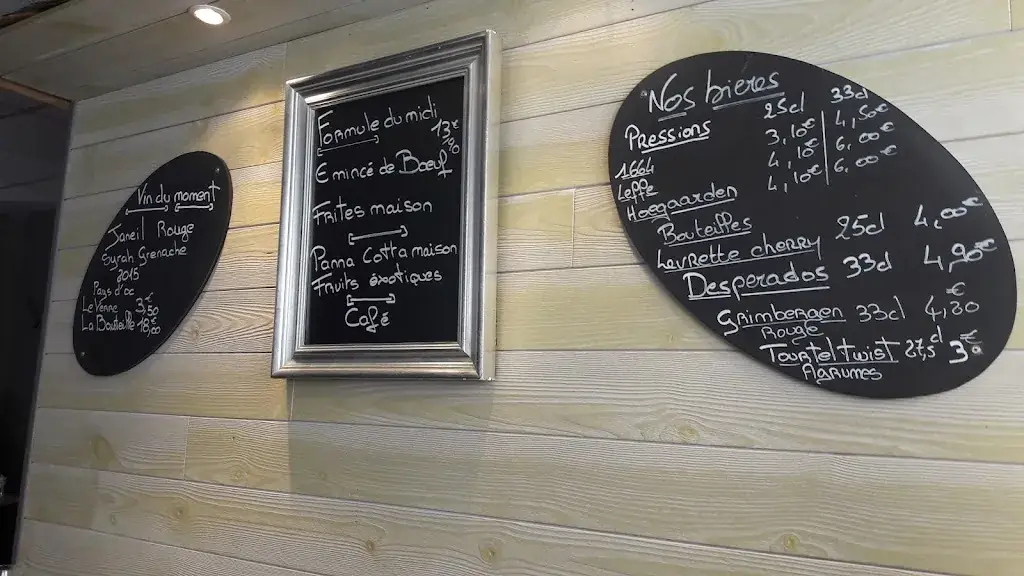 Vin du moment
Janeil Rouge
Syrah Grenache
2015
Pays d'oc
Le Verre 3,50€
La Bouteille 18,00
Formule du midi
13€80
Emincé de Bœuf
Frites maison
Panna Cotta maison
Fruits éxotiques
Café
Nos bieres
Pressions 25cl 33cl
1664 3,10€ 4,50€
Leffe 4,10€ 6,00€
Hoegaarden 4,10€ 6,00€
Bouteilles
Levrette cherry 25cl 4,00€
Desperados 33cl 4,90€
Grimbergen 33cl 4,80€
Rouge
Tourtel twist 27,5cl 3€
Agrumes